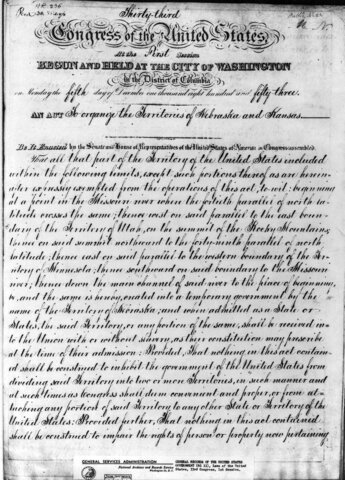 Thirty-third
Congress of the United States
At the First Session
BEGUN AND HELD AT THE CITY OF WASHINGTON
in the District of Columbia
on Monday the fifth day of December one thousand eight hundred and fifty three.
AN ACT To organize the Territories of Nebraska and Kansas
Be it Enacted by the Senate and House of Representatives of the United States of America in Congress assembled,
That all that part of the Territory of the United States included
within the following limits, except such portions thereof as are herein-
after expressly exempted from the operations of this act, to wit: beginning
at a point in the Missouri river where the fortieth parallel of north la-
titude crosses the same; thence east on said parallel to the east boun-
dary of the Territory of Utah, on the summit of the Rocky Mountains;
thence on said summit northward to the forty-ninth parallel of north
latitude; thence east on said parallel to the western boundary of the Ter-
ritory of Minnesota; thence southward on said boundary to the Missouri
river; thence down the main channel of said river to the place of beginning,
be, and the same is hereby, created into a temporary government by the
name of the Territory of Nebraska; and when admitted as a State or
States, the said Territory, or any portion of the same, shall be received in-
to the Union with or without slavery, as their constitution may prescribe
at the time of their admission: Provided, That nothing in this act contain-
ed shall be construed to inhibit the government of the United States from
dividing said Territory into two or more Territories, in such manner and
at such times as Congress shall deem convenient and proper, or from at-
taching any portion of said Territory to any other State or Territory of the
United States: Provided further, That nothing in this act contained
shall be construed to impair the rights of person or property now pertaining
GENERAL SERVICES ADMINISTRATION
National Archives and Records Service
Washington 25, D.C.
GENERAL RECORDS OF THE UNITED STATES
GOVERNMENT (RG 11), Laws of the United
States, 33rd Congress, 1st Session.